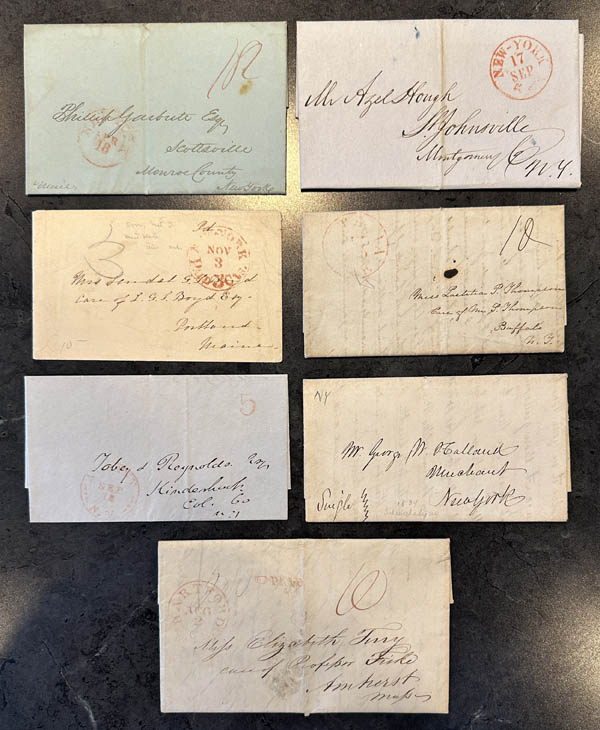 18
Phillip Garbutt Esq
Scottsville
Monroe County
New York
18
NEW-YORK
17
SEP
Mr Azel Hough
St Johnsville
Montgomery Co
N.Y.
3
Pd
NEW YORK
NOV
3
PAID 3 CTS
Mrs
Care of
Boyd Esq
Portland
Maine
10
18
Miss Laetitia P. Thompson
Care of Mr. S. Thompson
Buffalo
N. Y.
5
Tobey & Reynolds Esq
Kinderhook
Col. Co
N.Y
SEP
NY
Mr. George W. Holland
Merchant
New York
Single
HARTFORD
AUG
2
10
Miss Elizabeth Terry
care of Professor Fiske
Amherst
Mass